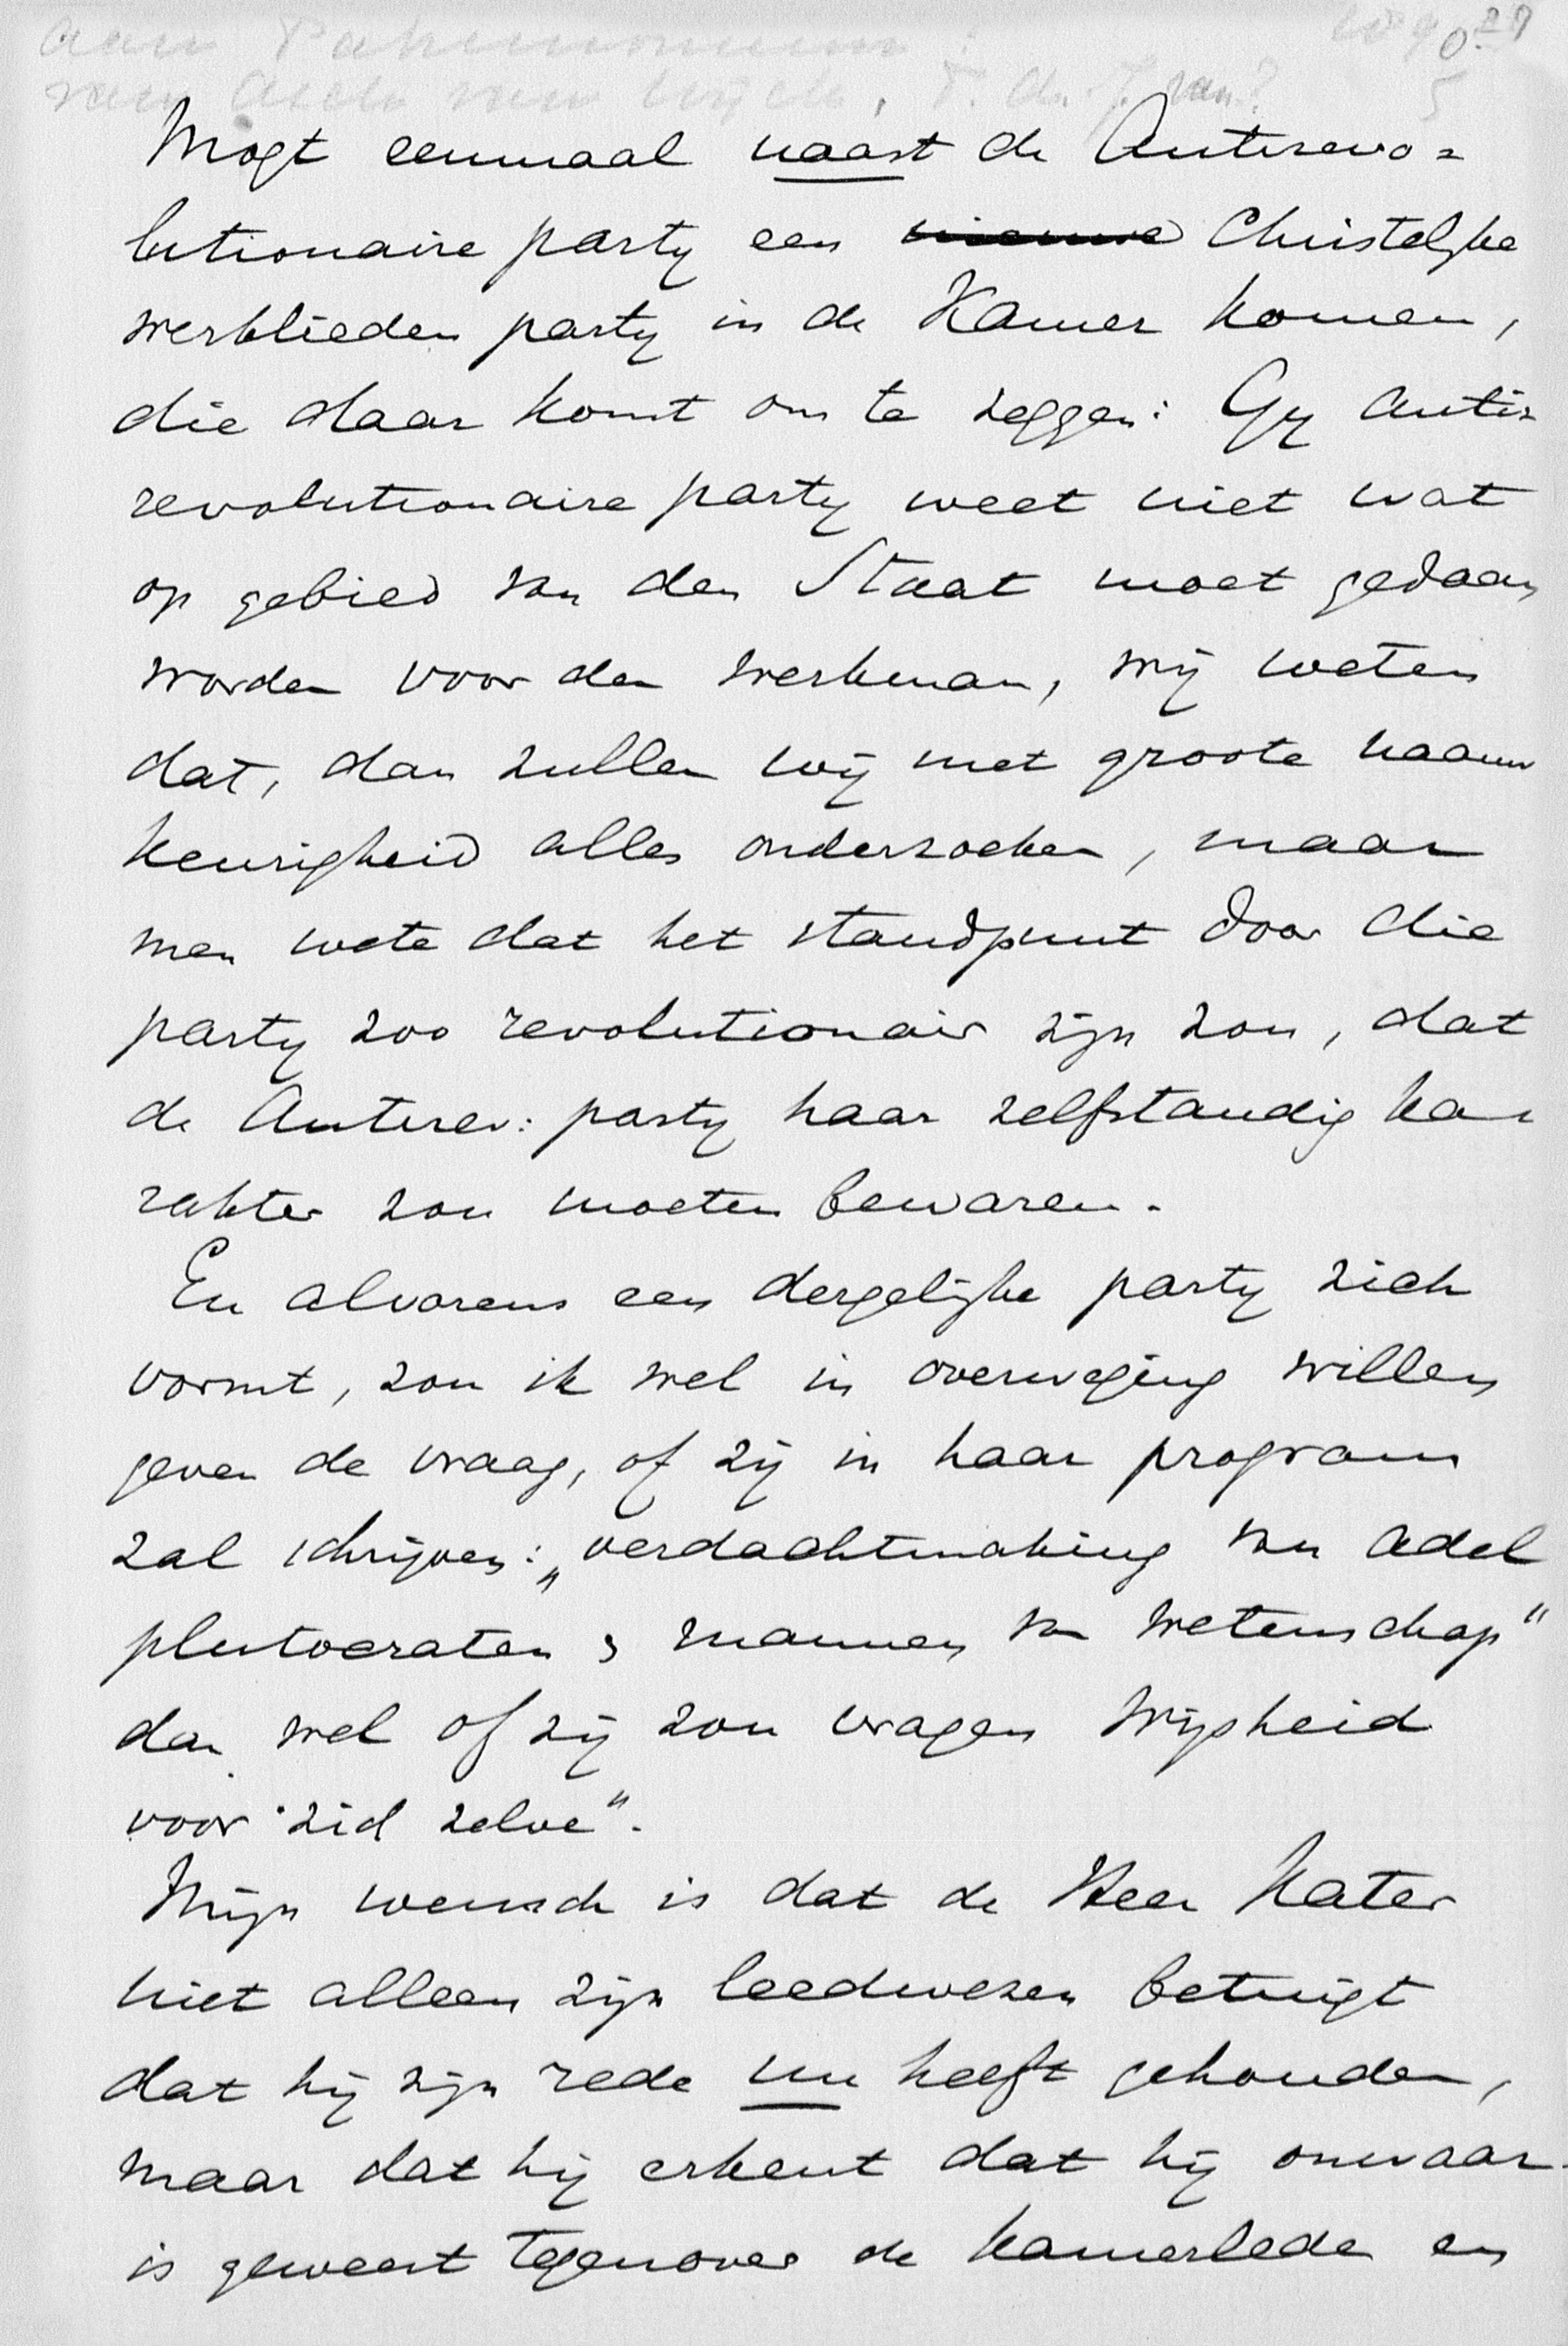 aan Patrimonium
van Asch van Wijck,
Mogt eenmaal naast de Antirevo=
lutionaire party een nieuwe Christelyke
werklieden party in de Kamer komen,
die daar komt om te zeggen: Gy anti=
revolutionaire party weet niet wat
op gebied van den Staat moet gedaan
worden voor den werkman, wij weten
dat, dan zullen wij met groote naauw
keurigheid alles onderzoeken, maar
men wete dat het standpunt door die
party zoo revolutionair zijn zou, dat
de Antirev: party haar zelfstandig ka=
rakter zou moeten bewaren.
En alvorens een dergelijke party zich
vormt, zou ik wel in overweging willen
geven de vraag, of zij in haar program
zal schrijven: „verdachtmaking van adel
plutocraten & mannen van wetenschap"
dan wel of zij zou vragen wijsheid
voor "zich zelve".
Mijn wensch is dat de Heer Kater
niet alleen zijn leedwezen betuigt
dat hij zijn rede nu heeft gehouden,
maar dat hij erkent dat hij onwaar
is geweest tegenover de kamerleden en